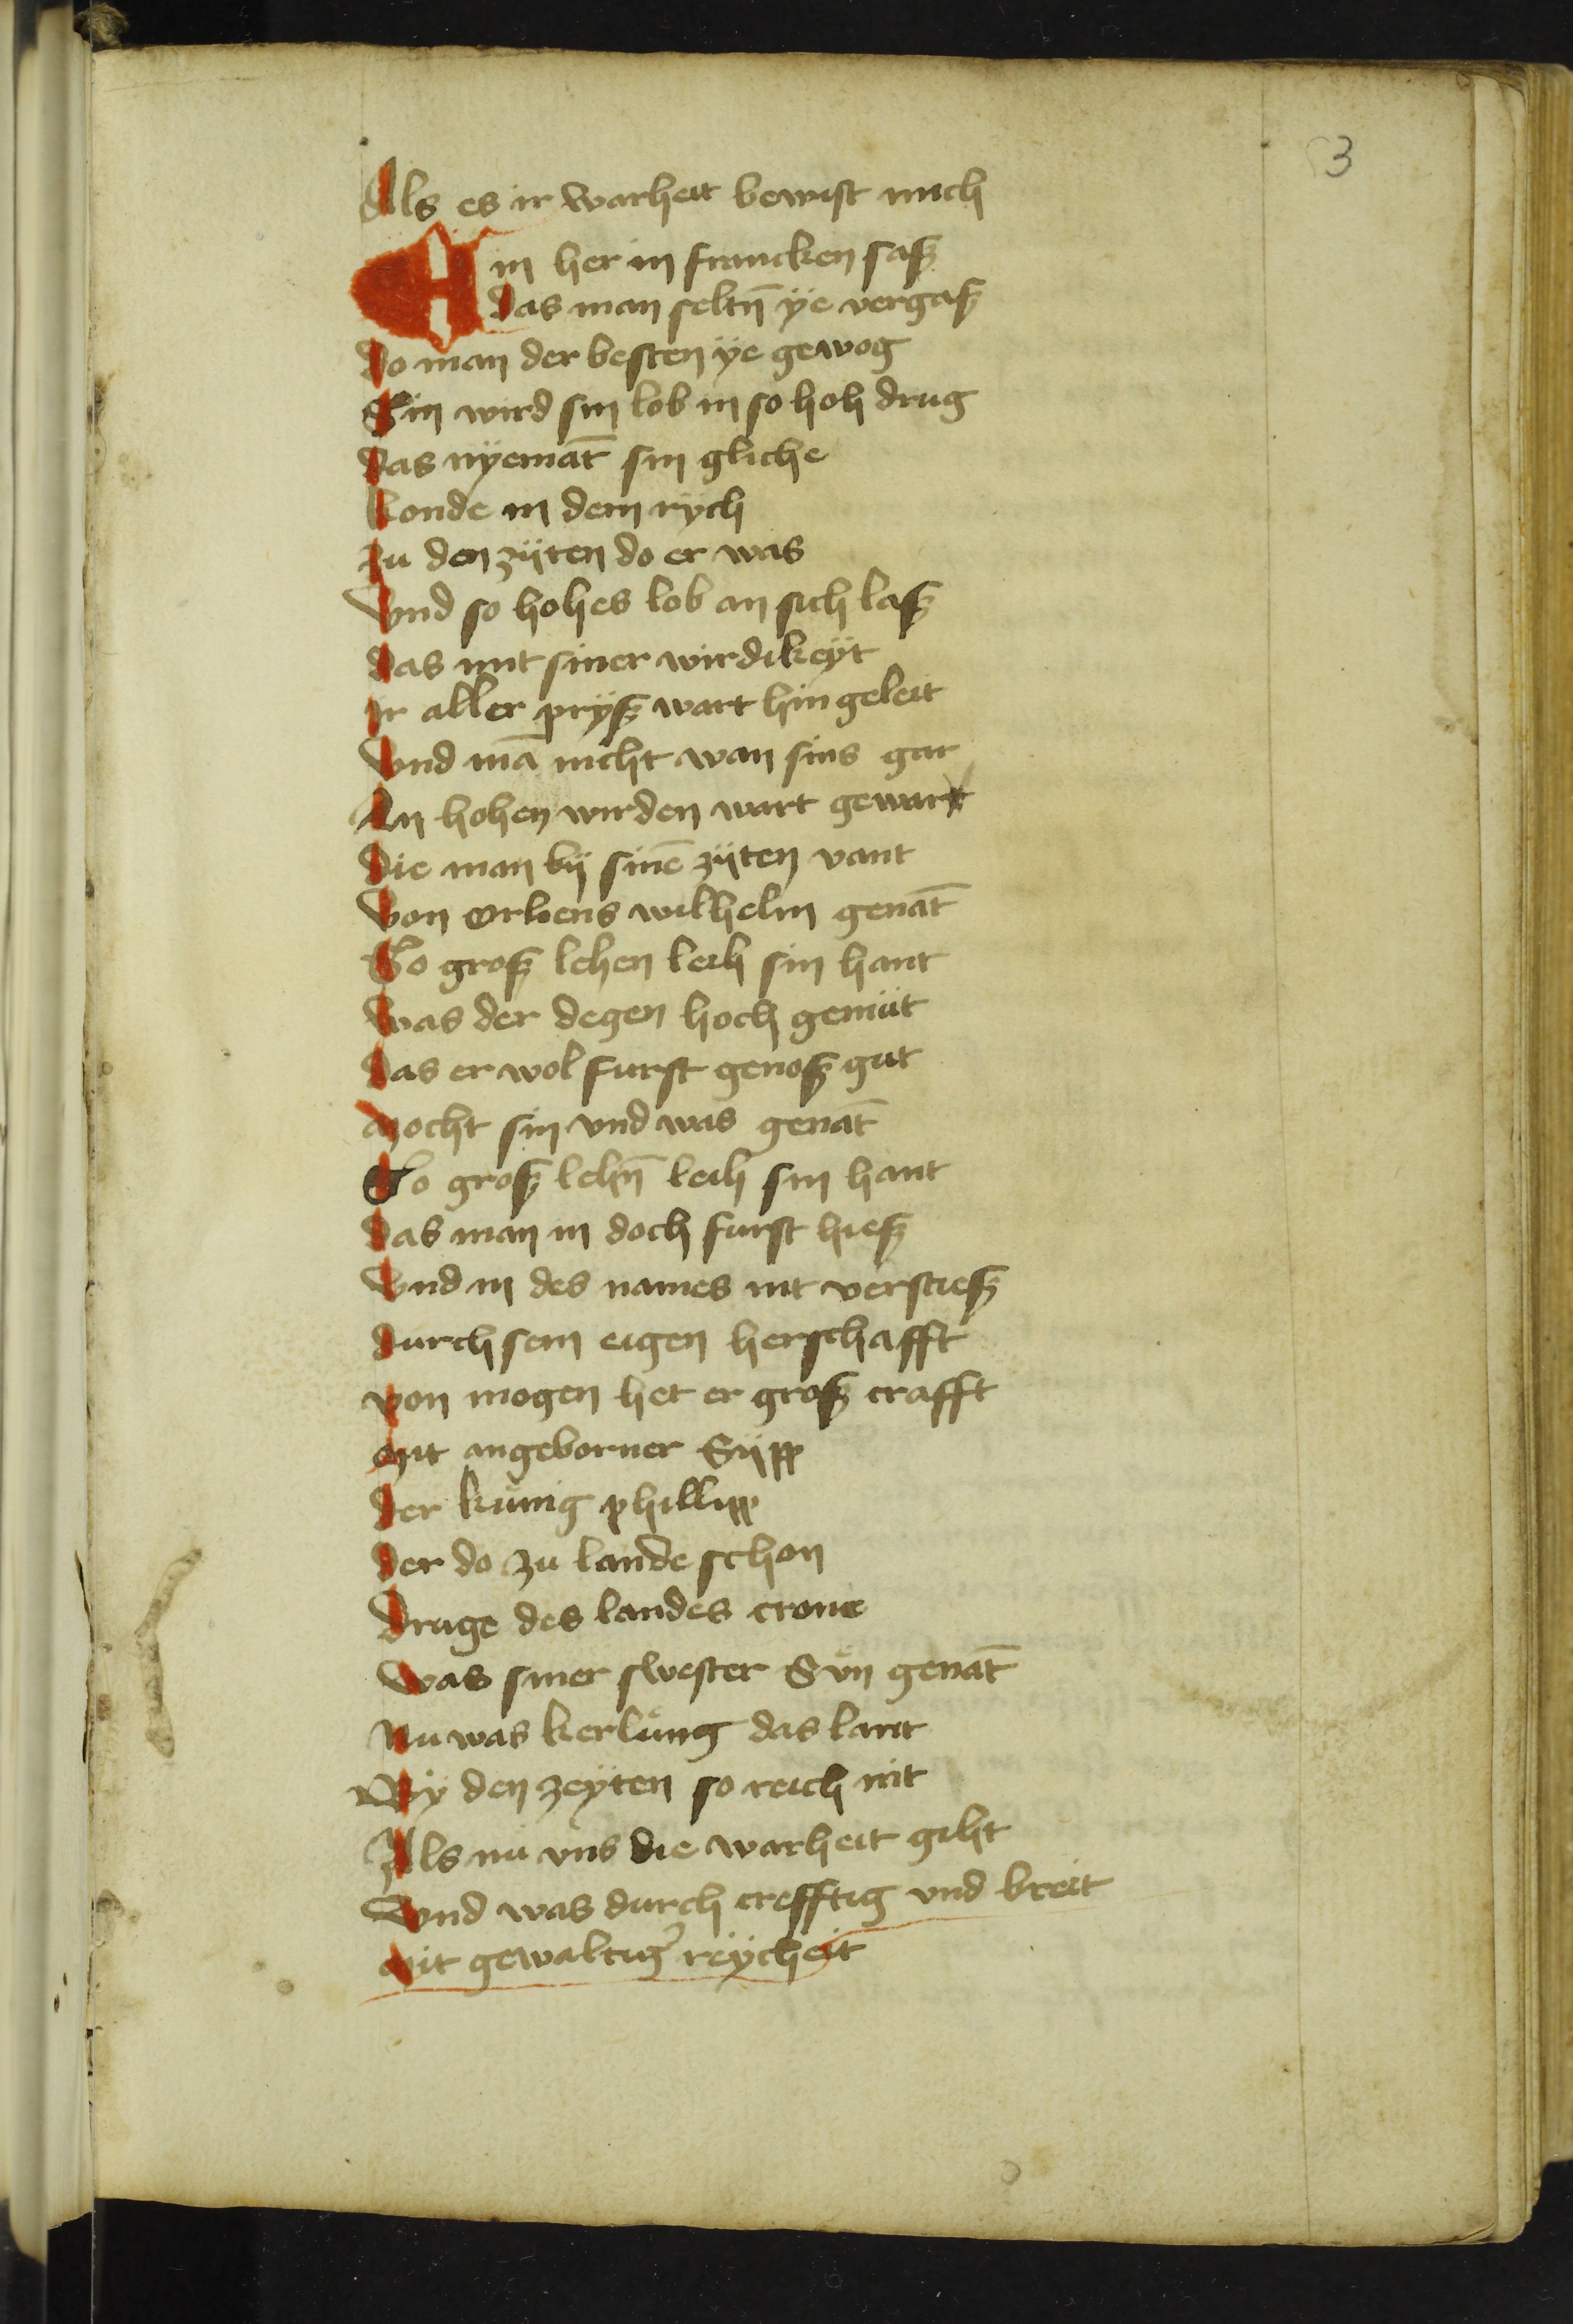 3
Als es ir warheit bewist mich
Ein her in francken saß
das man seltn̄ ÿe vergaß
do man der besten ÿe gewog
Sin wird sin lob in so hoh drug
das nÿemāt sin gliche
konde in dem rych
zu den zÿten do er was
Vnd so hohes lob an sich laß
das mit siner wirdikeÿt
ir aller prÿß wart hin geleit
Vnd mā nicht wan sins gar
An hohen wirden wart gewar
die man bÿ sinē zÿten vant
Von orliens wilhelm genāt
So groß lehen leih sin hant
was der degen hoch gemüt
das er wol furst genoß gut
mocht sin vnd was genāt
So groß lehn̄ leih sin hant
das man in doch furst hieß
Vnd in des names nit verstieß
durch sem eigen herschafft
von mogen het er groß crafft
mit angeborner Sÿpp
der kunig phillipp
der do zu lande schon
druge des landes crone
was siner swester Sun genāt
Nu was kerlung das lant
Bÿ den zeÿten so reich nit
Als nu vns die warheit giht
Vnd was durch crefftig vnd breit
mit gewaltig̾ reÿcheit